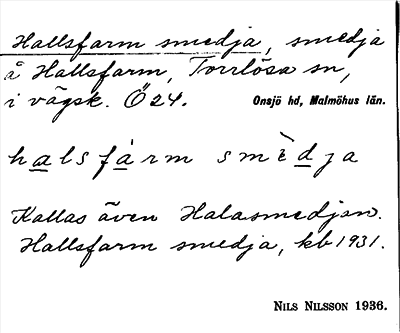 Hallsfarm smedja, smedja
å Hallsfarm, Torrlösa sn,
i vägsk. Ö24. Onsjö hd, Malmöhus län.
halsfàrm smèdja
Kallas även Halasmedjan.
Hallsfarm smedja, kb 1931.
NILS NILSSON 1936.